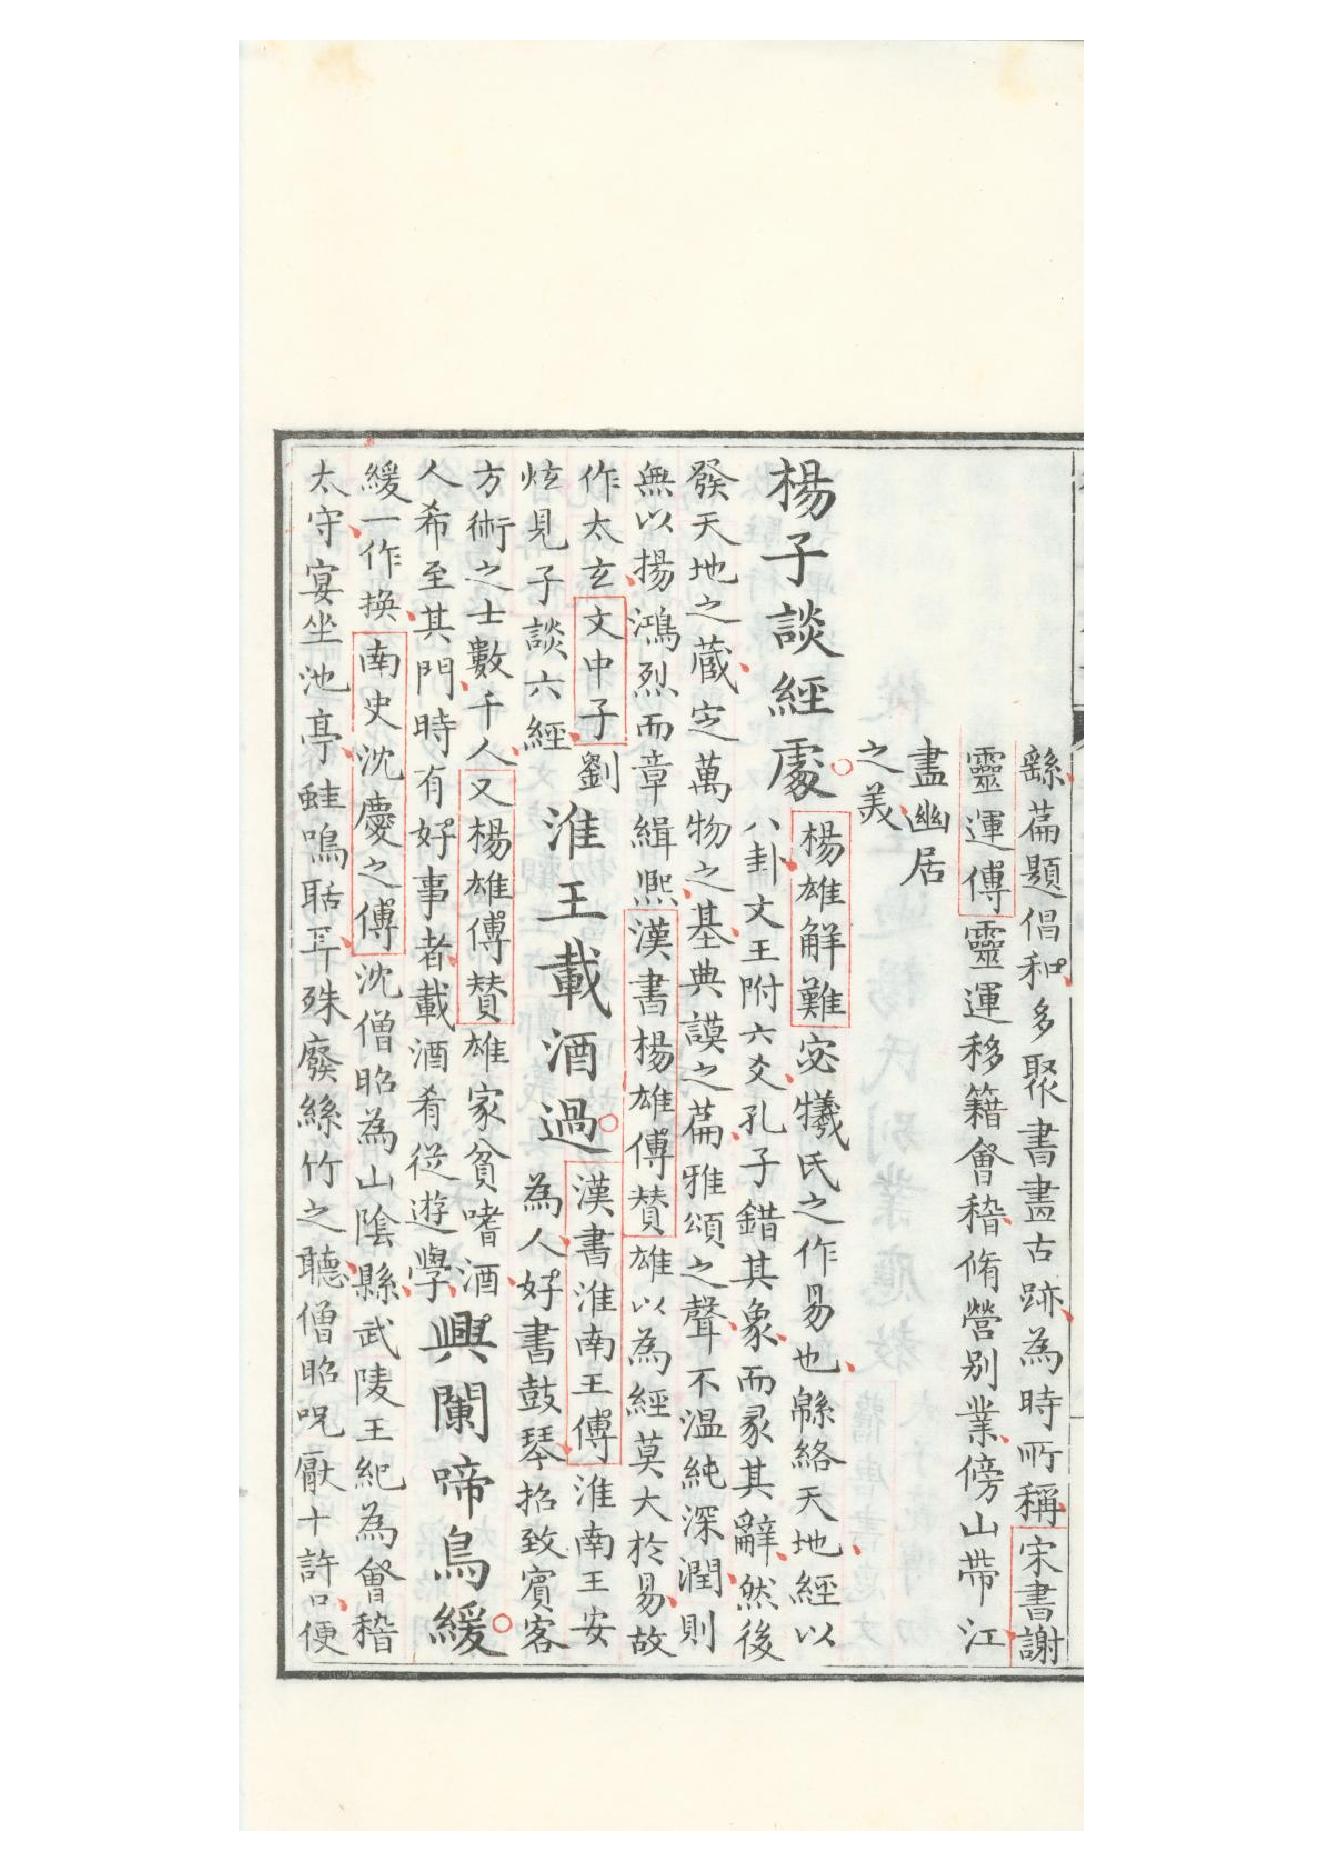 緜篇題倡和多聚書畫古跡為時所稱宋書謝
靈運傳靈運移籍會稽脩營别業傍山帶江
盡幽居
之美
楊子談經處
楊雄解難宓犧氏之作易也緜絡天地經以
八卦文王附六爻孔子錯其象而彖其辭然後
發天地之蔵定萬物之基典謨之篇雅頌之聲不溫純深潤則
無以揚鴻烈而章緝熈漢書楊雄傳贊雄以為經莫大於易故
作太玄文中子劉
炫見子談六經
淮王載酒過
漢書淮南王傳淮南王安
為人好書鼓琴招致賓客
方術之士數千人又楊雄傳贊雄家貧嗜酒
人希至其門時有好事者載酒肴從遊學
興闌啼鳥緩
緩一作換南史沈慶之傳沈僧昭為山陰縣武陵王紀為會稽
太守宴坐池亭蛙鳴聒耳殊廢絲竹之聽僧昭呪厭十許口便